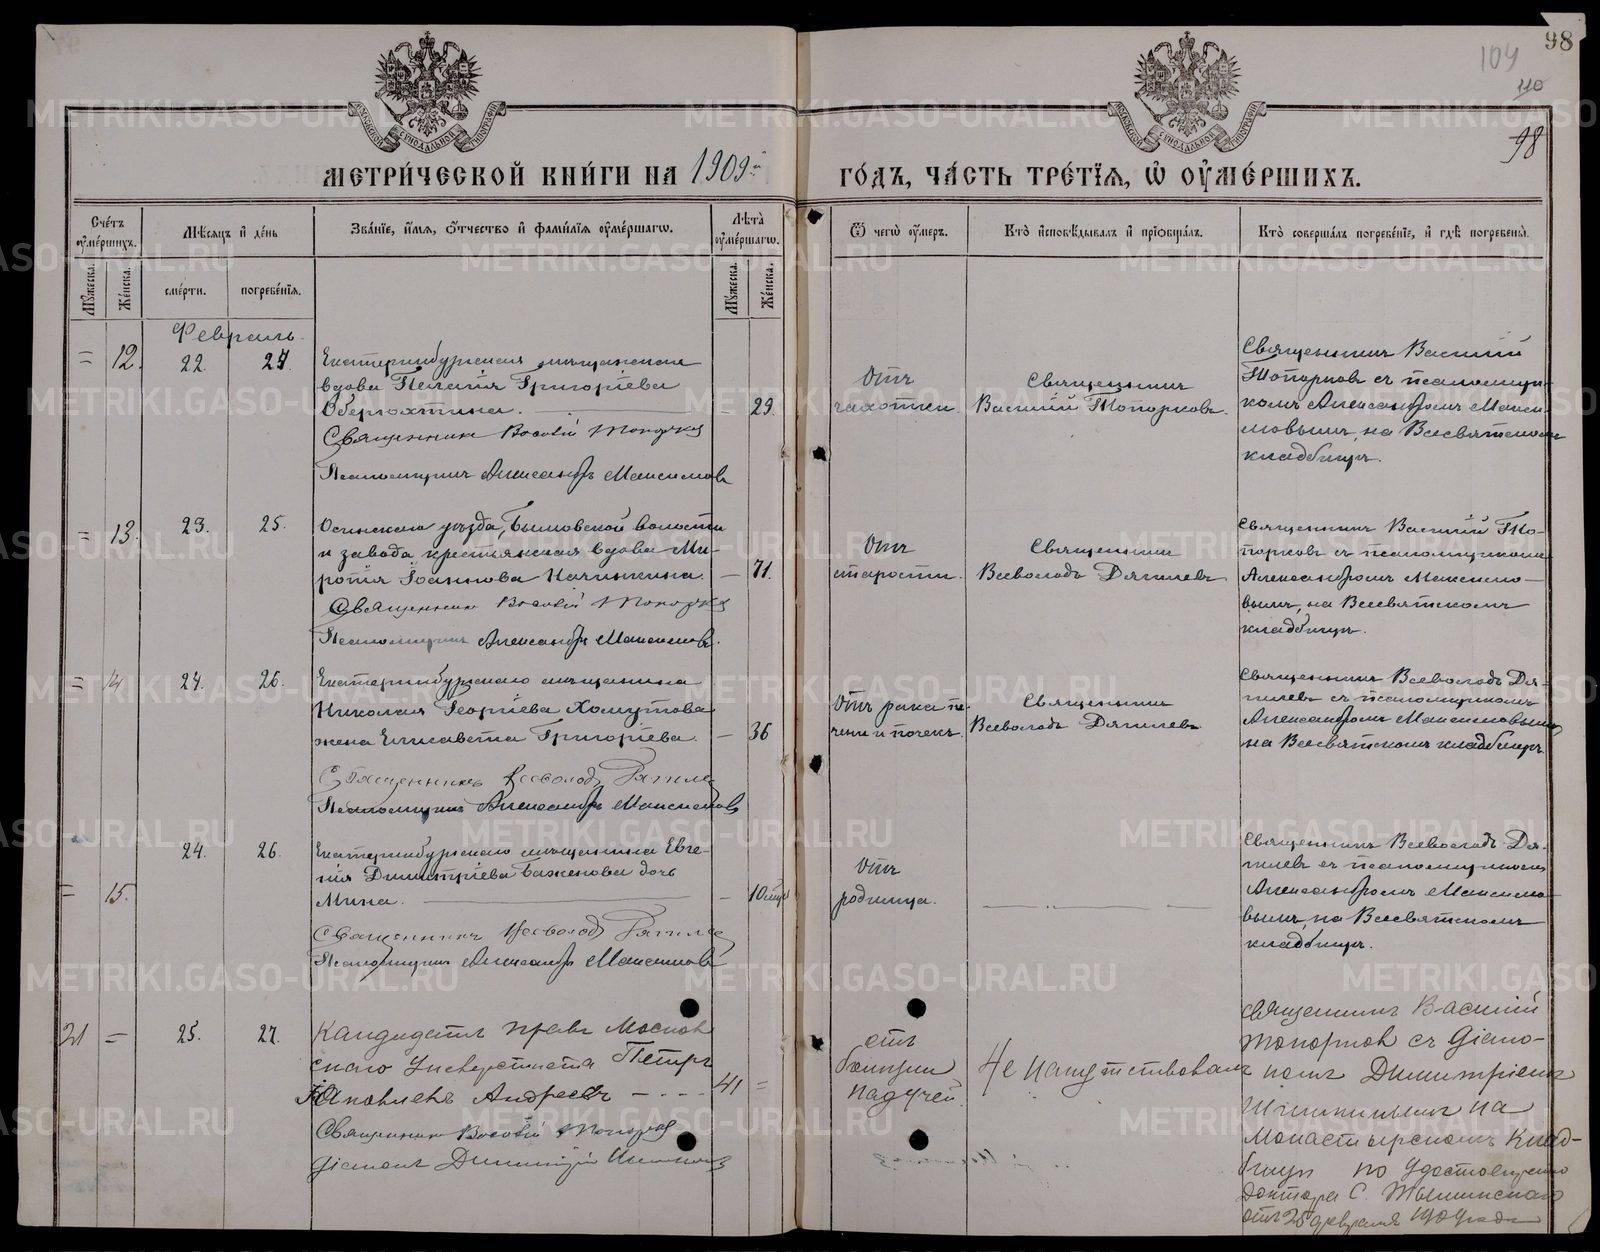 98
104
110
98
МЕТРИ́ЧЕСКОЙ КНИ́ГИ НА 1909й ГО́ДЪ, ЧА́СТЬ ТРЕ́ТЇЯ, Ѿ ОУ҆МЕ́РШИХЪ.
Сче́тъ оу҆ме́ршихъ.
Мѣ́сяцъ и҆ де́нь
Зва́нїе, и҆́мя, ѻ҆́тчество и҆ фами́лїя оу҆ме́ршагѡ.
Лѣта̀ оу҆ме́ршагѡ.
Ѿ чегѡ̀ оу҆́меръ.
Кто̀ и҆сповѣ́дывалъ и҆ прїѡбща́лъ.
Кто̀ соверша́лъ погребе́нїе, и҆ гдѣ̀ погребены̀.
Му́жеска.
Же́нска.
сме́рти.
погребе́нїя.
Му́жеска.
Же́нска.
Февраль.
= 12. 22. 24.
Екатеринбургская мѣщанская
вдова Пелагія Григоріева
Оберюхтина. — 29.
Священник Василій Топорков
Псаломщикъ Александръ Максимовъ
Отъ
чахотки.
Священникъ
Василій Топорковъ.
Священникъ Василій
Топорковъ съ псаломщи-
комъ Александромъ Макси-
мовымъ, на Всесвятскомъ
кладбищѣ.
= 13. 23. 25.
Осинскаго уѣзда, Бымовской волости
и завода крестьянская вдова Ми-
ропія Іоаннова Качинкина. — 71.
Священник Василій Топорков
Псаломщикъ Александръ Максимовъ.
Отъ
старости.
Священникъ
Всеволодъ Дягилевъ
Священникъ Василій То-
порковъ съ псаломщикомъ
Александромъ Максимо-
вымъ, на Всесвятскомъ
кладбищѣ.
= 14 24. 26.
Екатеринбургскаго мѣщанина
Николая Георгіева Хомутова
жена Елисавета Григоріева. — 36
Священникъ Всеволод Дягилев
Псаломщикъ Александръ Максимовъ
Отъ рака пе-
чени и почекъ.
Священникъ
Всеволодъ Дягилевъ
Священникъ Всеволодъ Дя-
гилевъ съ псаломщикомъ
Александромъ Максимовымъ,
на Всесвятскомъ кладбищѣ
= 15. 24. 26.
Екатеринбургскаго мѣщанина Евге-
нія Димитріева Баженова дочь
Нина. — 10 мѣс
Священникъ Всеволод Дягилев
Псаломщикъ Александръ Максимовъ
Отъ
родимца.
Священникъ Всеволодъ Дя-
гилевъ съ псаломщикомъ
Александромъ Максимо-
вымъ, на Всесвятскомъ
кладбищѣ.
21 = 25. 27.
Кандидатъ правъ Москов
скаго Университета Петръ
Яковлевъ Андреевъ — 41 =
Священник Василій Топорков
Діаконъ Димитрій
отъ
болѣзни
падучей.
Не напутствованъ
Священникъ Василій
Топорков съ Діако-
номъ Димитріемъ
на
Монастырскомъ клад-
бищѣ по удостовѣренію
Доктора С.
отъ 25 февраля 1909 года
METRIKI.GASO-URAL.RU